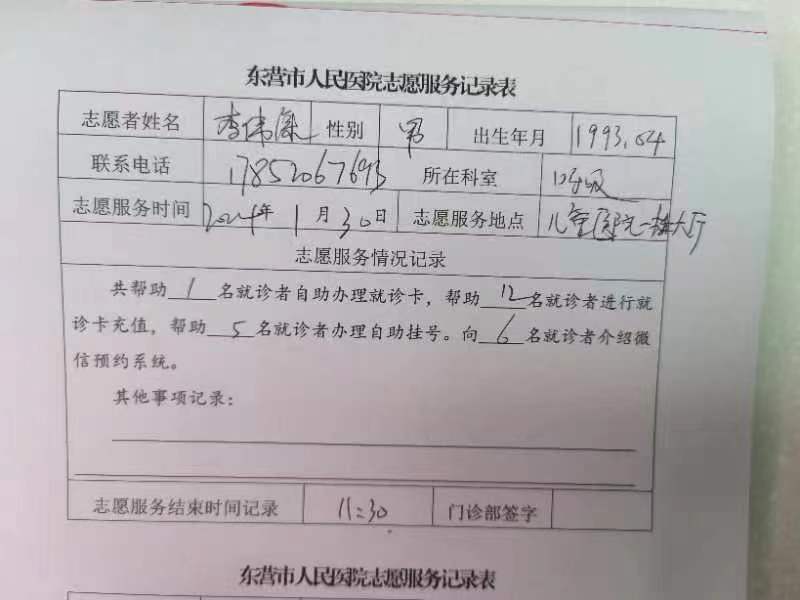 东营市人民医院志愿服务记录表
志愿者姓名 李伟 性别 男 出生年月 1993.04
联系电话 17852067693 所在科室
志愿服务时间 2024年1月30日 志愿服务地点 儿童医院一楼大厅
志愿服务情况记录
共帮助1名就诊者自助办理就诊卡，帮助12名就诊者进行就
诊卡充值，帮助5名就诊者办理自助挂号。向6名就诊者介绍微
信预约系统。
其他事项记录：
志愿服务结束时间记录 11:30 门诊部签字
东营市人民医院志愿服务记录表